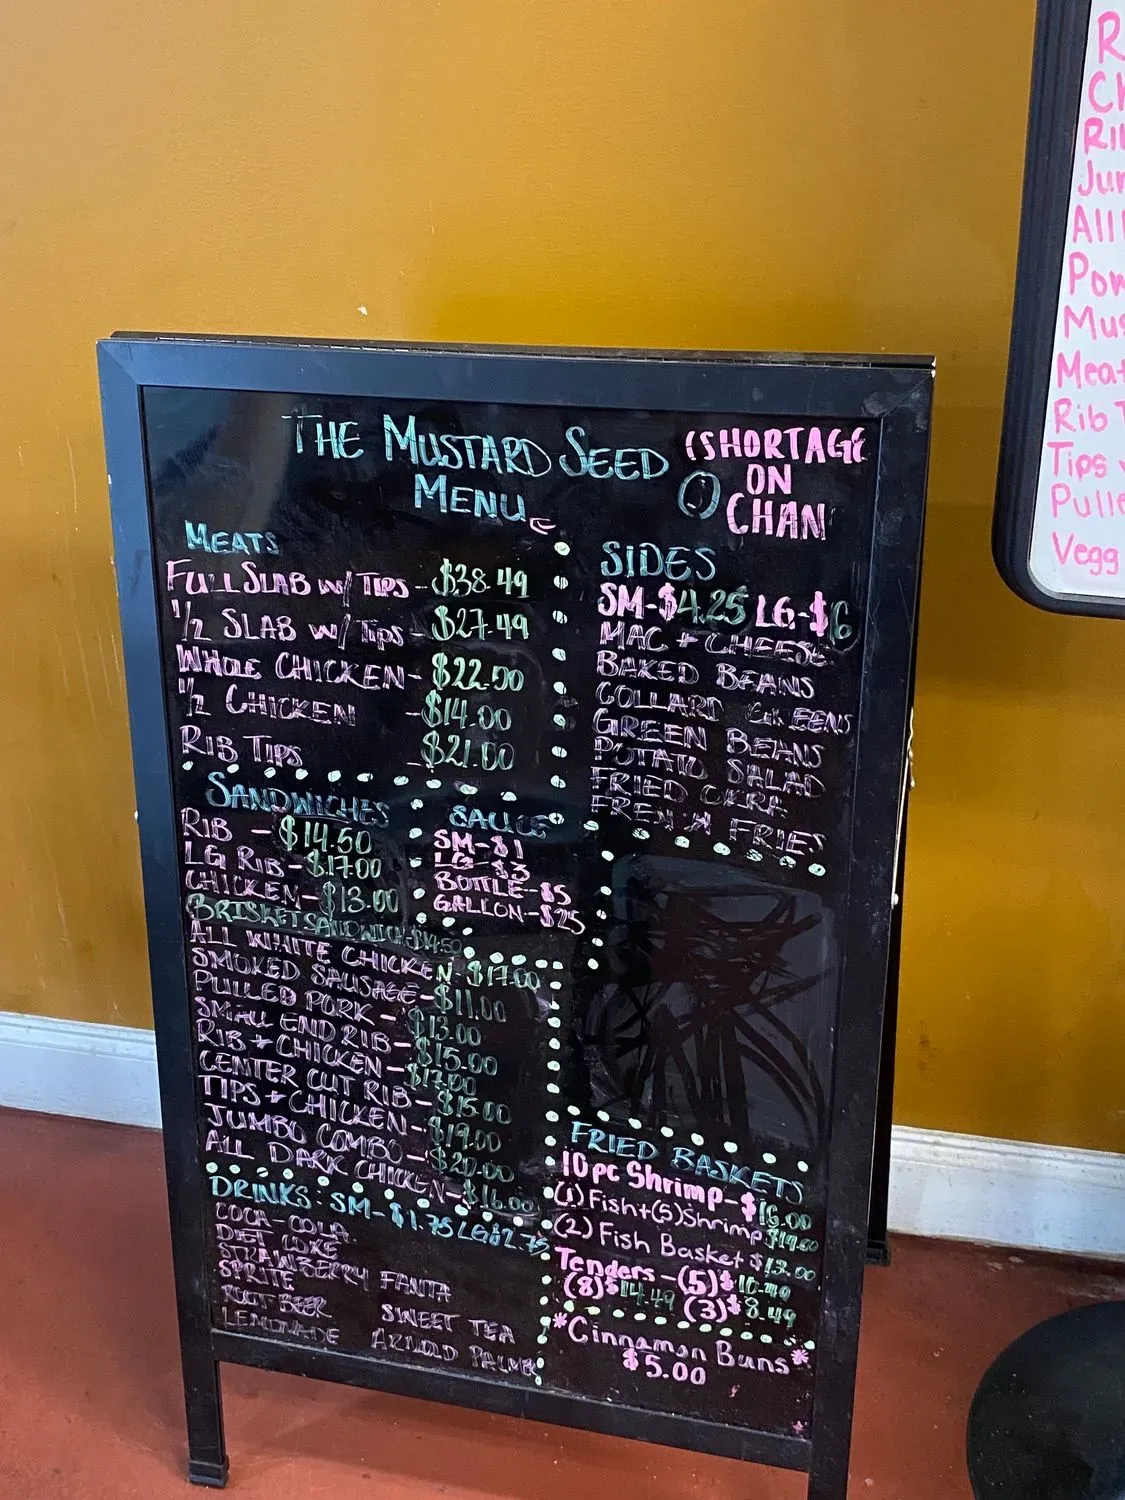 THE MUSTARD SEED
MENU
(SHORTAGE
ON
CHAN
MEATS
FULL SLAB w/ TIPS - $38.49
1/2 SLAB w/ Tips - $27.49
WHOLE CHICKEN - $22.50
1/2 CHICKEN - $14.00
RIB TIPS - $21.00
SANDWICHES
RIB - $14.50
LG RIB - $17.00
CHICKEN - $13.00
BRISKET SANDWICH $14.50
ALL WHITE CHICKEN - $17.00
SMOKED SAUSAGE - $11.00
PULLED PORK - $13.00
SMALL END RIB - $15.00
RIB + CHICKEN - $17.00
CENTER CUT RIB - $15.00
TIPS + CHICKEN - $19.00
JUMBO COMBO - $20.00
ALL DARK CHICKEN - $16.00
SAUCE
SM - $1
LG - $3
BOTTLE - $5
GALLON - $25
DRINKS: SM - $1.75 LG $2.75
COCA-COLA
DIET COKE
STRAWBERRY FANTA
SPRITE
ROOT BEER SWEET TEA
LEMONADE ARNOLD PALMER
SIDES
SM - $4.25 LG - $6
MAC + CHEESE
BAKED BEANS
COLLARD GREENS
GREEN BEANS
POTATO SALAD
FRIED OKRA
FRENCH FRIES
FRIED BASKETS
10 pc Shrimp - $16.00
(1) Fish + (5) Shrimp $14.00
(2) Fish Basket $13.00
Tenders - (5) $10.49
(8) $14.49 (3) $8.49
*Cinnamon Buns*
$5.00
R
Ch
Rib
Jum
All
Pow
Mus
Meat
Rib T
Tips
Pulle
Vegg